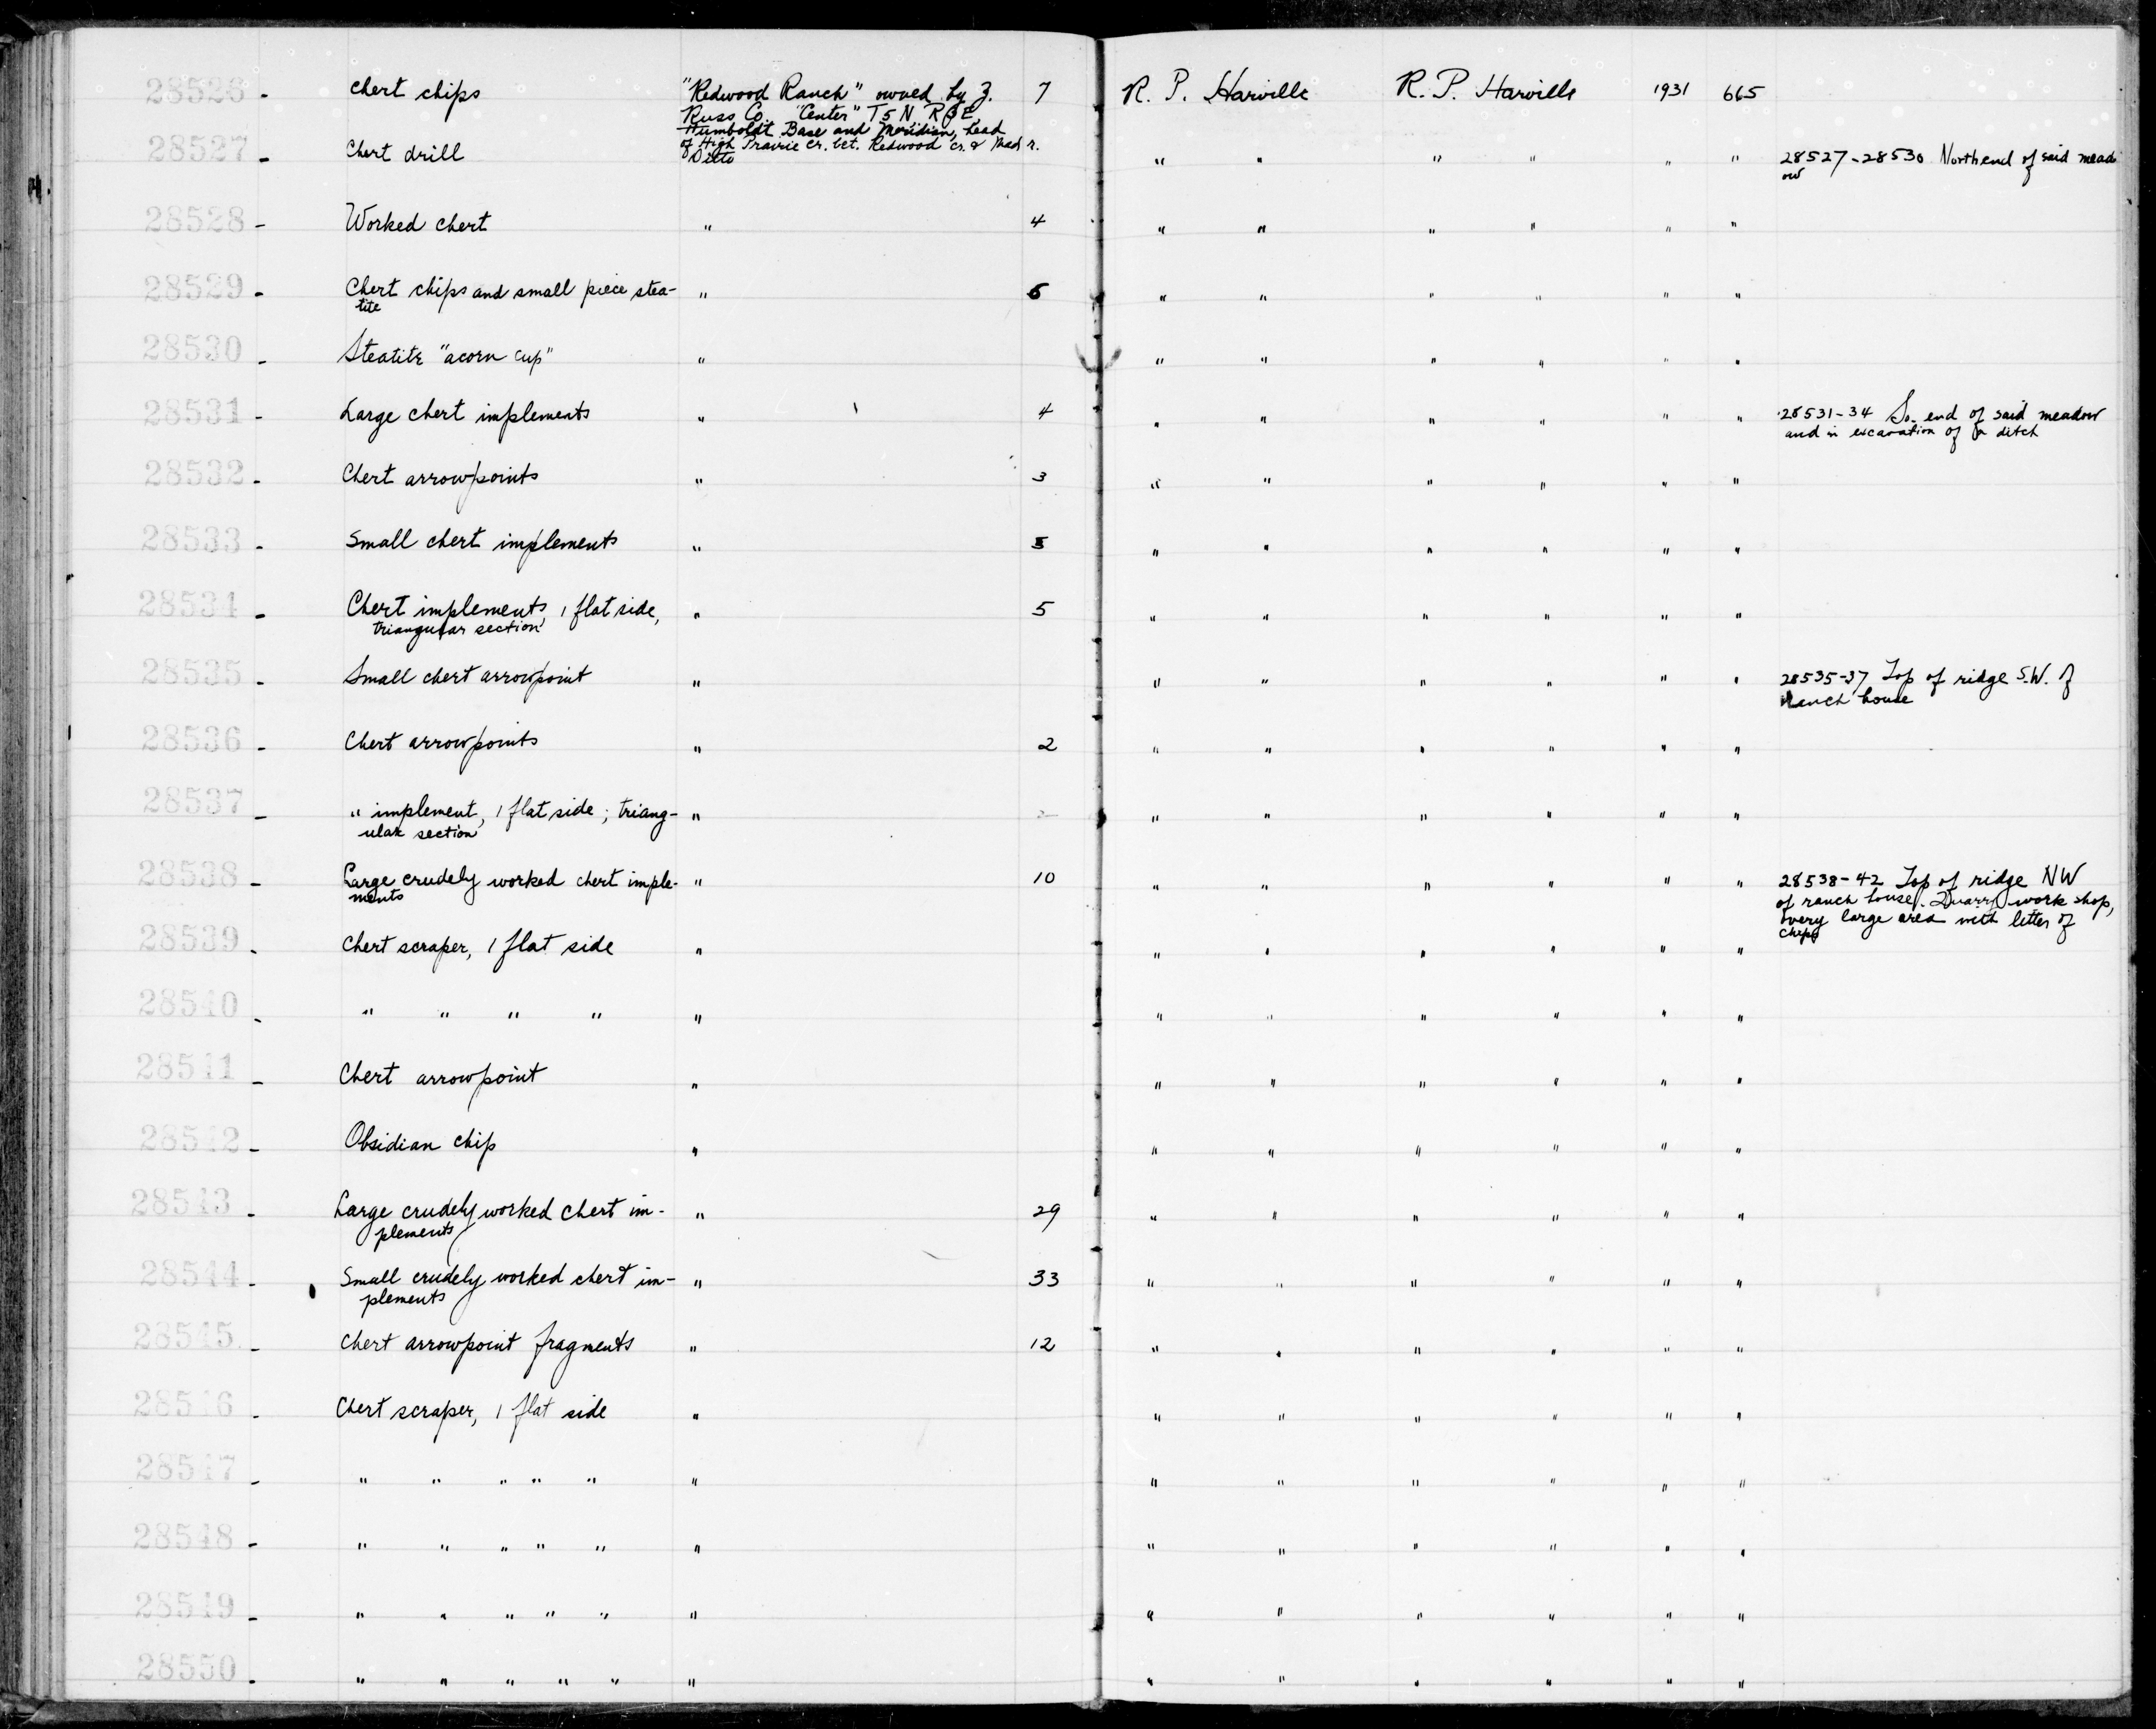 28526 - Chert chips "Redwood Ranch" owned by Z. 7 R. P. Harville R. P. Harville 1931 665
Russ Co. "Center" T5N, R3E,
Humboldt Base and Meridian, head
of High Prairie Cr. bet. Redwood Cr. & Mad r.
28527 - Chert drill Ditto " " " " " " 28527-28530 North end of said mead
ow
28528 - Worked chert " 4 " " " " " "
28529 - Chert chips and small piece stea- " 6 " " " " " "
tite
28530 - Steatite "acorn cup" " " " " " " "
28531 - Large chert implements " 4 " " " " " " 28531-34 So. end of said meadow
and in excavation of a ditch
28532 - Chert arrowpoints " 3 " " " " " "
28533 - Small chert implements " 5 " " " " " "
28534 - Chert implements, 1 flat side, " 5 " " " " " "
triangular section
28535 - Small chert arrowpoint " " " " " " " 28535-37 Top of ridge S.W. of
Ranch house
28536 - Chert arrowpoints " 2 " " " " " "
28537 - " implement, 1 flat side; triang- " " " " " " "
ular section
28538 - Large crudely worked chert imple- " 10 " " " " " " 28538-42 Top of ridge NW
ments of ranch house. Quarry work shop,
very large area with litter of
chips
28539 - Chert scraper, 1 flat side " " " " " " "
28540 - " " " " " " " " " " "
28541 - Chert arrowpoint " " " " " " "
28542 - Obsidian chip " " " " " " "
28543 - Large crudely worked chert im- " 29 " " " " " "
plements
28544 - Small crudely worked chert im- " 33 " " " " " "
plements
28545 - Chert arrowpoint fragments " 12 " " " " " "
28546 - Chert scraper, 1 flat side " " " " " " "
28547 - " " " " " " " " " " " "
28548 - " " " " " " " " " " " "
28549 - " " " " " " " " " " " "
28550 - " " " " " " " " " " " "